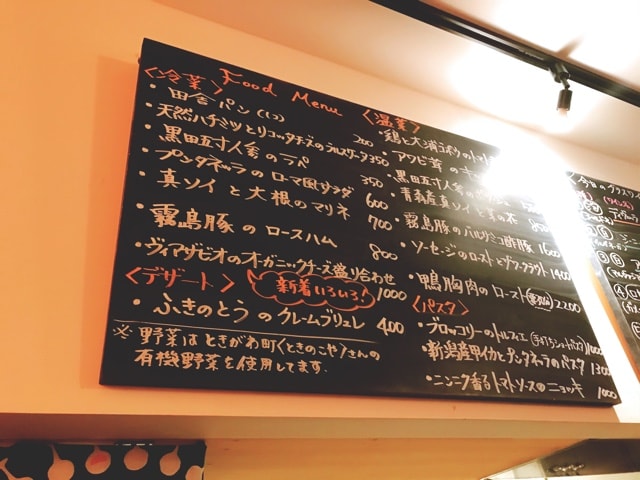 Food Menu
〈冷菜〉
・田舎パン(1コ) 200
・天然ハチミツとリコッタチーズのブルスケッタ 350
・黒田五寸人参のラペ 350
・プンタネッラのローマ風サラダ 600
・真ソイと大根のマリネ 700
・霧島豚のロースハム 800
・ヴィアザビオのオーガニックチーズ盛り合わせ 1000
〈デザート〉 新着いろいろ!
・ふきのとうのクレームブリュレ 400
※野菜はときがわ町〈ときのこや〉さんの
有機野菜を使用してます.
〈温菜〉
・鶏と大浦ごぼうのトマト
・アワビ茸の
・黒田五寸人参の
・青森産真ソイと
・霧島豚のバルサミコ酢豚 1600
・ソーセージのローストとザワークラウト 1400
・鴨胸肉のロースト 2200
〈パスタ〉
・ブロッコリーのトルフィエ(手打ちショートパスタ) 1000
・新潟産甲イカとプンタネッラのパスタ 1300
・ニンニク香るトマトソースのニョッキ 1000
今日のグラスワイン